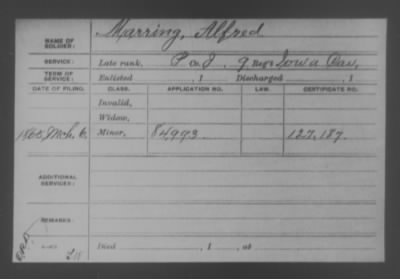 NAME OF SOLDIER: Marring, Alfred
SERVICE: Late rank, P Co J. 9 Regt Iowa Cav,
TERM OF SERVICE: Enlisted , 1 Discharged , 1
DATE OF FILING. CLASS. APPLICATION NO. LAW. CERTIFICATE NO.
Invalid,
Widow,
1865, Mch. 6. Minor, 84993 127,187.
ADDITIONAL SERVICES:
REMARKS:
Died , 1 , at